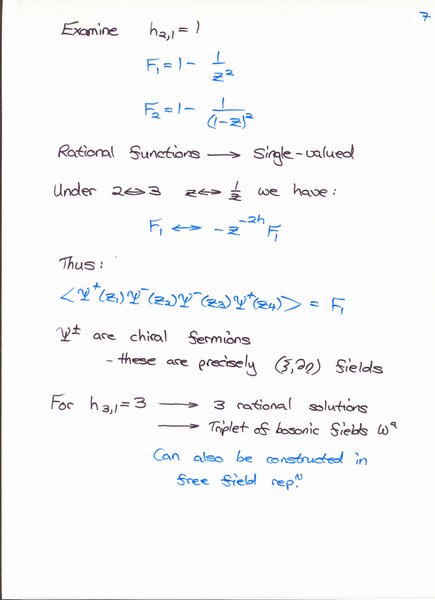 7
Examine h₂,₁ = 1
F₁ = 1 - 1/z²
F₂ = 1 - 1/(1-z)²
Rational functions → Single-valued
Under 2↔3 z↔1/z we have:
F₁ ↔ -z⁻²ʰ F₁
Thus:
<Ψ⁺(z₁)Ψ⁻(z₂)Ψ⁻(z₃)Ψ⁺(z₄)> = F₁
Ψ± are chiral fermions
- these are precisely (ξ,∂η) fields
For h₃,₁ = 3 → 3 rational solutions
→ Triplet of bosonic fields Wᵃ
Can also be constructed in
free field repⁿ.